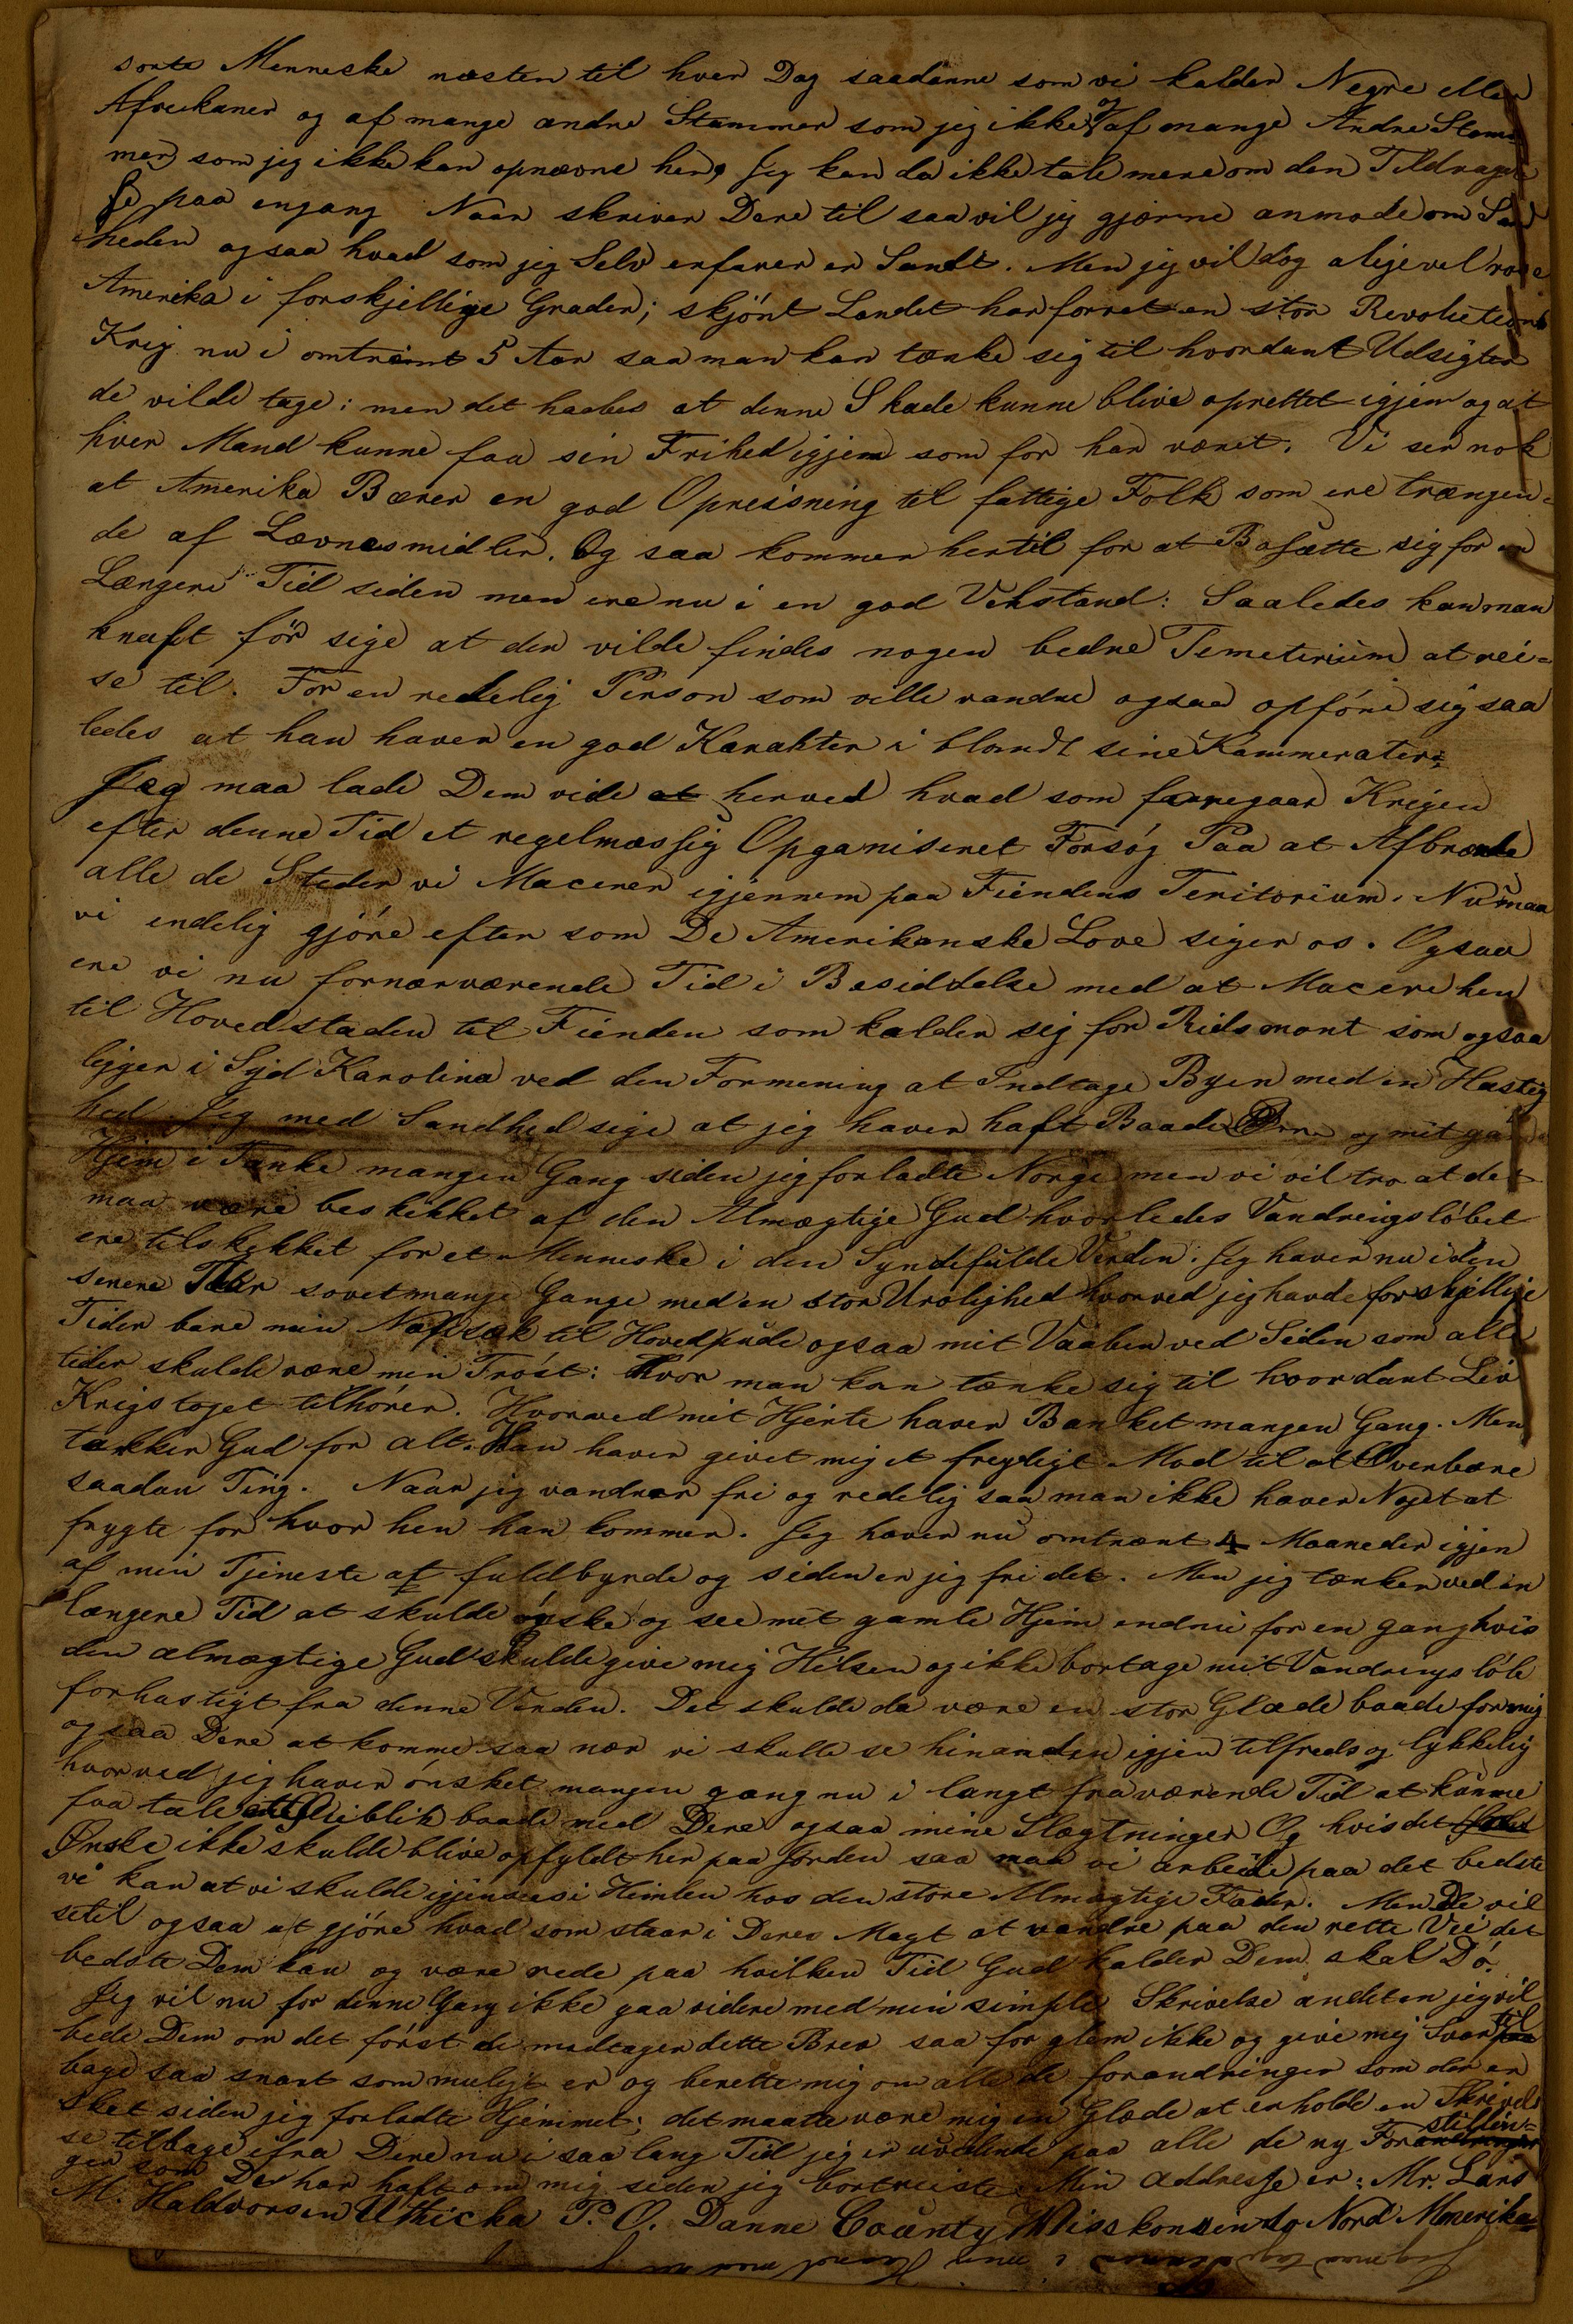 sorte Menneske næsten til hver Dag saadanne som vi kalder Negre eller
Afreikaner og af mange andre Stammer som jeg ikke og af mange Andre Stam
mer som jeg ikke kan opnævne her, Jeg kan da ikke tale mere om den Tildragel
se paa engang Naar skriver Dere til saa vil jeg gjærne anmode om Sand
heden ogsaa hvad som jeg Selv erfarer er Sandt. Men jeg vil dog aligevel rose
Amerika i forskjellige Grader; skjónt Landet har forret en stor Revolutions
Krig nu i omtrænt 5 Aar saa man kan tænke sig til hvordant Udsigter
de vilde tage: men det haabes at denne Skade kunne blive oprettet igjen og at
hver Mand kunne faa sin Frihed igjem som for har været. Vi ser nok
at Amerika Bærer en god Opreisning til fattige Folk som ere trængen=
de af Lævnesmidler. Og saa kommer hertil for at Bosætte sig for en
Længere Tid siden men ere nu i en god Velstand: Saaledes kan man
knaft för sige at der vilde findes nogen bedre Temeterium at rei=
se til. For en redelig Person som ville vandre ogsaa opfóre sig saa
ledes at han haver en god Karakter i blandt sine Kammerater.
Jæg maa lade Dem vide at herved hvad som faaregaar Krigen
efter denne Tid et regelmæssig Opganiseret Forsóg Paa at Afbrænde
alle de Steder vi Macerer igjennem paa Fiendens Teritorium. Nu maa
vi endelig gjóre efter som De Amerikanske Love siger os. Ogsaa
ere vi nu fornærværende Tid i Besiddelse med at Macere hen
til Hovedstaden til Fienden som kalder sig for Ridsmont som ogsaa
ligger i Syd Karolina ved den Formening at Indtage Byen med en Hastig
hed Jeg med Sandhed sige at jeg haver haft Baade Dere og mit gamle
Hjem i Tanke mangen Gang siden jeg forladte Norge men vi vil tro at det
maa være beskikket af den Almægtige Gud hvorledes Vandreigslóbet
ere tilskykket for et Menneske i den Syndefulde Verden. Jeg haver nu i den
senere Tider sovet mange Gange med en stor Urolighed hvorved jeg havde forskjellige
Tider bare min Næpsæk til Hovedpude ogsaa mit Vaaben ved Siden som alle
tider skulde være min Tróst: Hvor man kan tænke sig til hvordant Liv
Krigstoget tilhórer. Hvorved mit Hjerte haver Banket mangen Gang. Men
takker Gud for alt. Han haver givet mig et freydigt Mod til at Overbære
saadan Ting. Naar jeg vandrer fri og redelig saa man ikke haver Noget at
frygte for hvor hen han kommer. Jeg haver nu omtrænt 4 Maaneder igjen
af min Tjeneste at fuldbyrde og siden er jeg fri det. Men jeg tænker ved en
længere Tid at skulde ónske og see mit gamle Hjem endnu for en gang hvis
den almægtige Gud skulde give mig Hilsen og ikke bortage mit Vandrings lób
forhastigt fra denne Verden. Det skulde da være en stor Glæde baade for mig
ogsaa Dere at komme saa nær vi skulle se hinanden igjen tilfreds og lykkelig
hvorved jeg haver ónsket mangen gang nu i langt fraværende Tid at kunne
faa tale et Øieblik baade med Dere ogsaa mine Slægtninger Og hvis det
Ønske ikke skulde blive opfyldt her paa Jorden saa maa vi arbeide paa det bedste
vi kan at vi skulde igjensees i Himlen hos den store Almægtige Fader. Men De vil
setil ogsaa at gjóre hvad som staar i Deres Magt at vandre paa den rette Vei det
bedste Dem kan og være rede paa hvilken Tid Gud kalder Dem skal Dó.
Jeg vil nu for denne Gang ikke gaa videre med min simple Skrivelse andet en jeg vil
bede Dem om det fórst de modtager dette Brev saa for glem ikke og give mig Svar til
bage saa snart som muligt er og berette mig om alle de forandringer som der er
sket siden jeg forladte Hjemmet; det maatte være mig en Glæde at erholde en Skrivel
se tilbage ifra Dere nu i saa lang Tid jeg er uvidende paa alle de ny Forestillin=
ger som De har haft om mig siden jeg bortreiste Min addresse er: Mr. Lars
M. Haldvorsen Uthicka P. O. Danne County Wisskonsin Nord Amerika